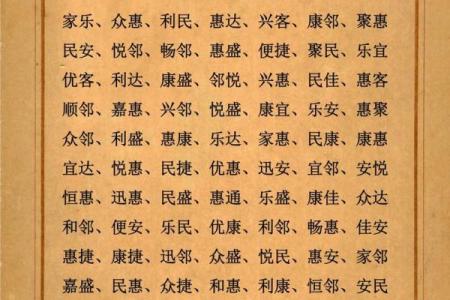 家乐、众惠、利民、惠达、兴客、康邻、聚惠
民安、悦邻、畅邻、惠盛、便捷、聚民、乐宜
优客、利达、康盛、邻悦、兴惠、民佳、惠客
顺邻、嘉惠、兴邻、悦盛、康宜、乐安、惠聚
众邻、利盛、惠康、乐达、家惠、民康、康惠
宜达、悦惠、民捷、优惠、迅安、宜邻、安悦
恒惠、迅惠、民盛、惠通、乐盛、康佳、众达
和邻、便安、乐民、优康、利邻、畅惠、佳安
惠捷、康捷、迅邻、众盛、悦民、惠安、家邻
嘉盛、民惠、众捷、和惠、利康、恒邻、安民